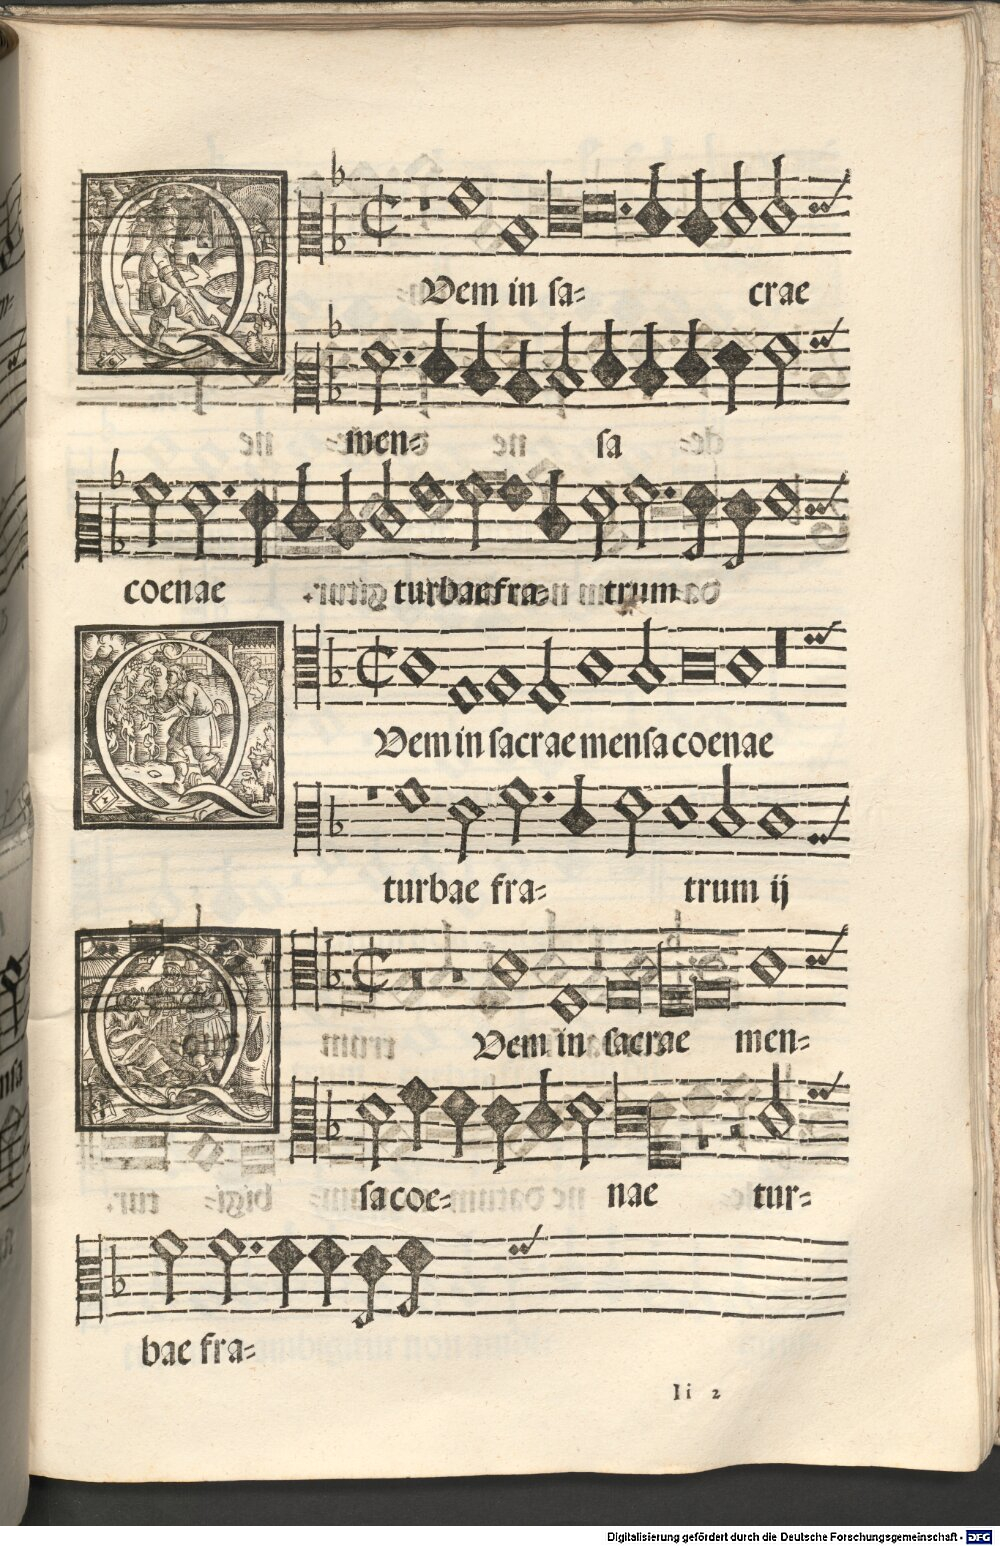 QVem in sa= crae
men= sa
coenae turbae fra= trum
QVem in sacrae mensa coenae
turbae fra= trum ij
QVem in sacrae men=
sa coe= nae tur=
bae fra=
Ii 2
Digitalisierung gefördert durch die Deutsche Forschungsgemeinschaft - DFG